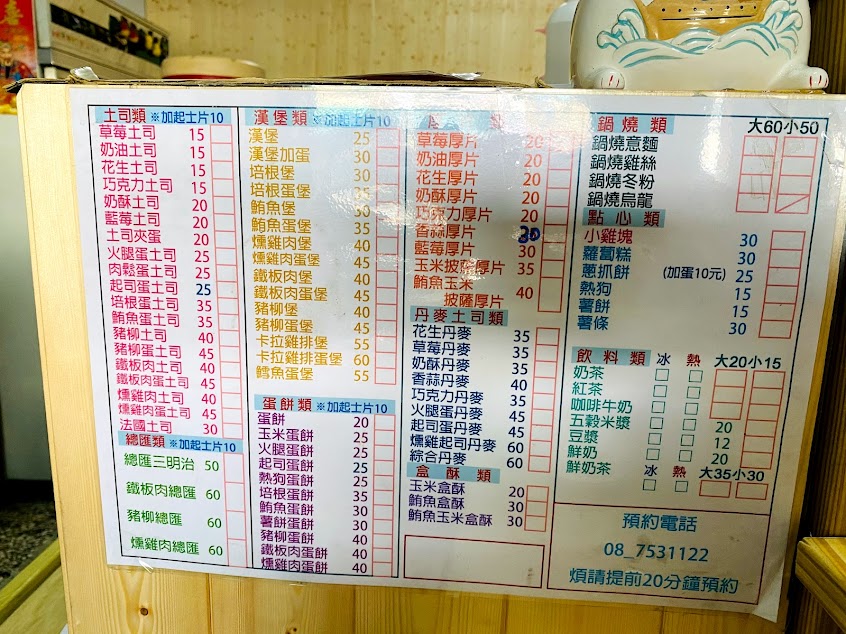 土司類 ※加起士片10
草莓土司 15
奶油土司 15
花生土司 15
巧克力土司 15
奶酥土司 20
藍莓土司 20
土司夾蛋 20
火腿蛋土司 25
肉鬆蛋土司 25
起司蛋土司 25
培根蛋土司 35
鮪魚蛋土司 35
豬柳土司 40
豬柳蛋土司 45
鐵板肉土司 40
鐵板肉蛋土司 45
燻雞土司 40
燻雞蛋土司 45
法國土司 30
總匯類 ※加起士片10
總匯三明治 50
鐵板肉總匯 60
豬柳總匯 60
燻雞肉總匯 60
漢堡類 ※加起士片10
漢堡 25
漢堡加蛋 30
培根堡 30
培根蛋堡 35
鮪魚堡 30
鮪魚蛋堡 35
燻雞肉堡 40
燻雞肉蛋堡 45
鐵板肉堡 40
鐵板肉蛋堡 45
豬柳堡 40
豬柳蛋堡 45
卡拉雞排堡 55
卡拉雞排蛋堡 60
鱈魚蛋堡 55
蛋餅類 ※加起士片10
蛋餅 20
玉米蛋餅 25
火腿蛋餅 25
起司蛋餅 25
熱狗蛋餅 25
培根蛋餅 35
鮪魚蛋餅 30
薯餅蛋餅 30
豬柳蛋餅 40
鐵板肉蛋餅 40
燻雞肉蛋餅 40
草莓厚片 20
奶油厚片 20
花生厚片 20
奶酥厚片 20
巧克力厚片 20
香蒜厚片 30
藍莓厚片 30
玉米披薩厚片 35
鮪魚玉米
披薩厚片 40
丹麥土司類
花生丹麥 35
草莓丹麥 35
奶酥丹麥 35
香蒜丹麥 40
巧克力丹麥 35
火腿蛋丹麥 45
起司蛋丹麥 45
燻雞起司丹麥 60
綜合丹麥 60
盒酥類
玉米盒酥 20
鮪魚盒酥 30
鮪魚玉米盒酥 30
鍋燒類 大60小50
鍋燒意麵
鍋燒雞絲
鍋燒冬粉
鍋燒烏龍
點心類
小雞塊 30
蘿蔔糕 30
蔥抓餅 (加蛋10元) 25
熱狗 15
薯餅 15
薯條 30
飲料類 冰 熱 大20小15
奶茶
紅茶
咖啡牛奶
五穀米漿 20
豆漿 12
鮮奶 20
鮮奶茶 冰 熱 大35小30
預約電話
08_7531122
煩請提前20分鐘預約